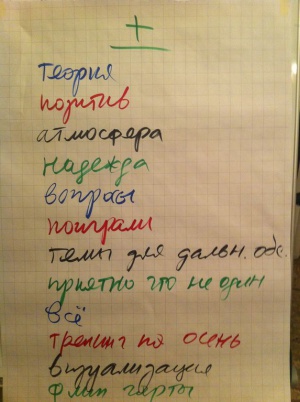 +
теория
позитив
атмосфера
надежда
вопросы
поиграли
темы для дальн. обс.
приятно что не один
всё
тренинг на осень
визуализация
флип чарты